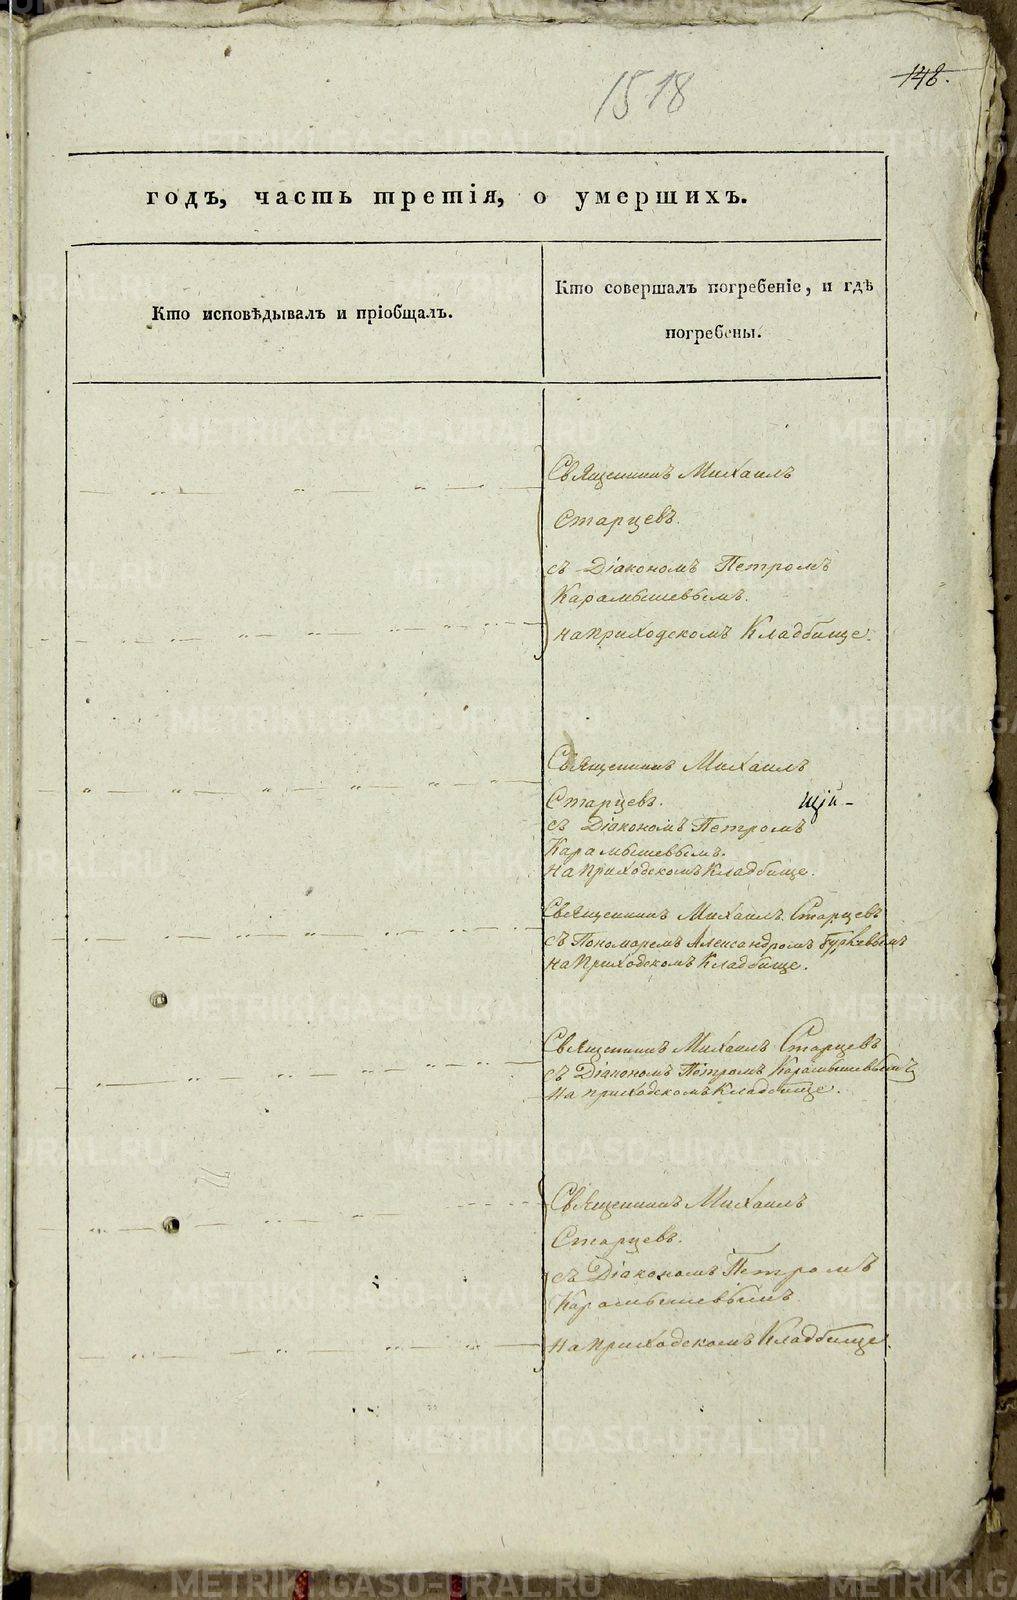 148.
1518
годъ, часть третія, о умершихъ.
Кто исповѣдывалъ и пріобщалъ.
Кто совершалъ погребеніе, и гдѣ
погребены.
Священникъ Михаилъ
Старцевъ.
съ Діакономъ Петромъ
Карамышевымъ.
на приходскомъ Кладбище.
Священникъ Михаилъ
Старцевъ.
щій-
съ Діакономъ Петромъ
Карамышевымъ.
на приходскомъ Кладбище.
Священникъ Михаилъ Старцевъ
съ Пономаремъ Александромъ
на Приходскомъ Кладбище.
Священникъ Михаилъ Старцевъ
съ Діакономъ Петромъ Карамышевымъ
на приходскомъ Кладбище.
Священникъ Михаилъ
Старцевъ.
съ Діакономъ Петромъ
Карамышевымъ
на приходскомъ Кладбище.
METRIKI.GASO-URAL.RU